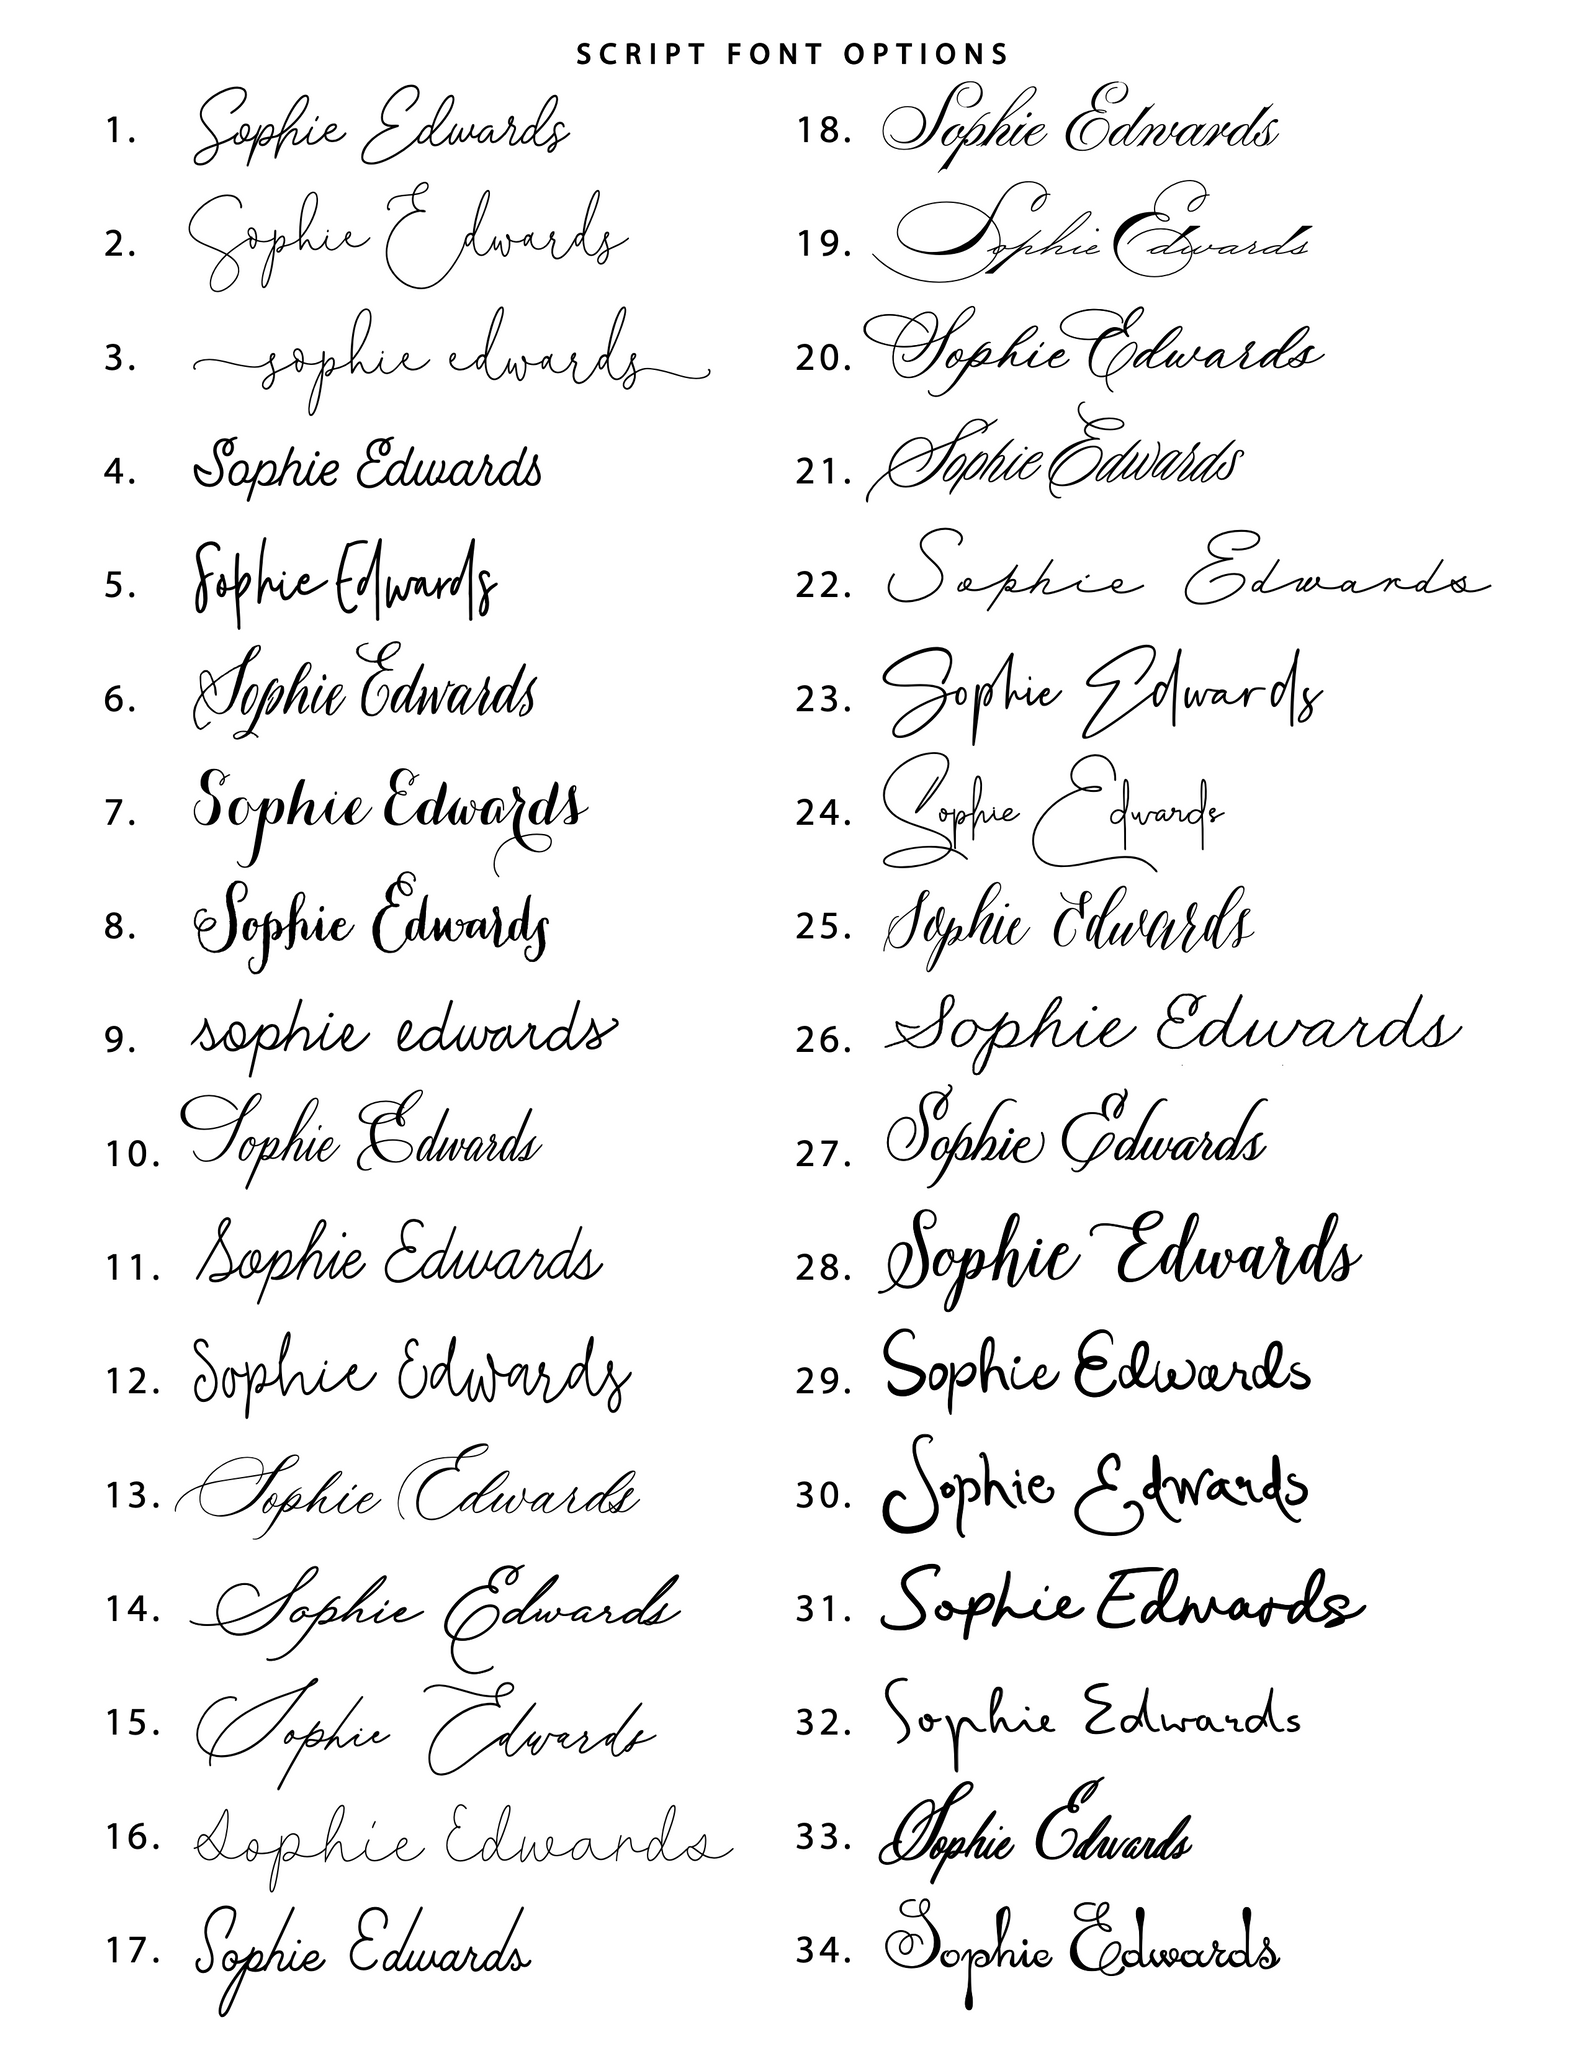 SCRIPT FONT OPTIONS
1. Sophie Edwards
2. Sophie Edwards
3. sophie edwards
4. Sophie Edwards
5. Sophie Edwards
6. Sophie Edwards
7. Sophie Edwards
8. Sophie Edwards
9. sophie edwards
10. Sophie Edwards
11. Sophie Edwards
12. Sophie Edwards
13. Sophie Edwards
14. Sophie Edwards
15. Sophie Edwards
16. Sophie Edwards
17. Sophie Edwards
18. Sophie Edwards
19. Sophie Edwards
20. Sophie Edwards
21. Sophie Edwards
22. Sophie Edwards
23. Sophie Edwards
24. Sophie Edwards
25. Sophie Edwards
26. Sophie Edwards
27. Sophie Edwards
28. Sophie Edwards
29. Sophie Edwards
30. Sophie Edwards
31. Sophie Edwards
32. Sophie Edwards
33. Sophie Edwards
34. Sophie Edwards